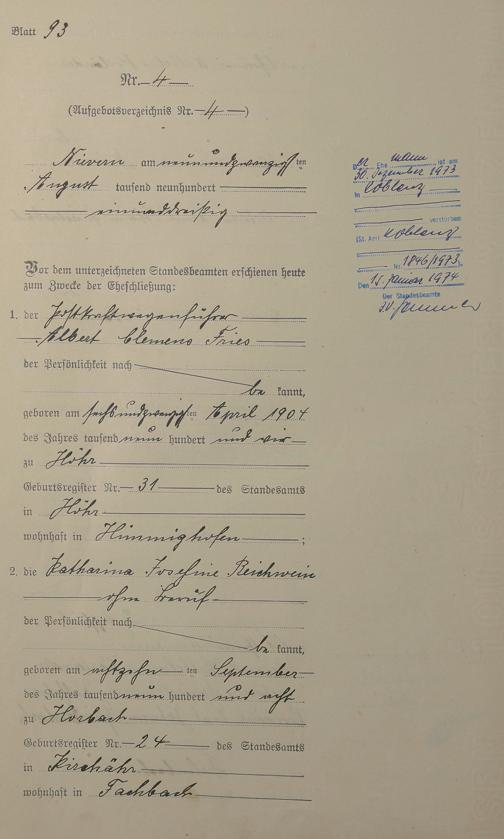 Blatt 93
Nr. 4
(Aufgebotsverzeichnis Nr. 4)
Nievern am neunundzwanzigsten
August tausend neunhundert
einunddreißig
Vor dem unterzeichneten Standesbeamten erschienen heute
zum Zwecke der Eheschließung:
1. der Postkraftwagenführer
Albert Clemens Fries
der Persönlichkeit nach
be kannt,
geboren am sechsundzwanzigsten April 1904
des Jahres tausend neun hundert und vier
zu Höhr
Geburtsregister Nr. 31 des Standesamts
in Höhr
wohnhaft in Himmighofen ;
2. die Katharina Josefine Reichwein
ohne Beruf
der Persönlichkeit nach
be kannt,
geboren am achtzehn ten September
des Jahres tausend neun hundert und acht
zu Horbach
Geburtsregister Nr. 24 des Standesamts
in Kirchähr
wohnhaft in Fachbach
Der Ehemann ist am
30. Dezember 1973
in Koblenz
verstorben
(St. Amt Koblenz
Nr. 1846/1973
Den 15. Januar 1974
Der Standesbeamte
I.V.